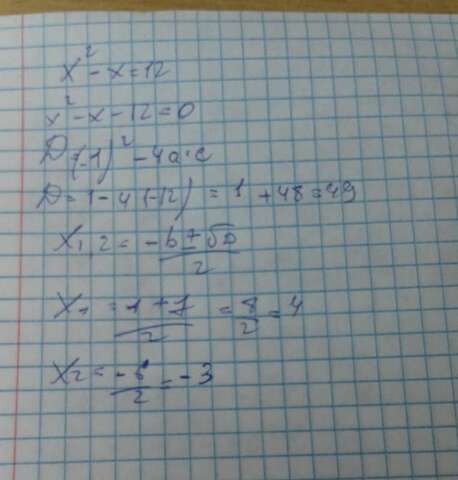 x² - x = 12
x² - x - 12 = 0
D (-1)² - 4a·c
D = 1 - 4 (-12) = 1 + 48 = 49
X₁,₂ = (-b ± √D)/2
X₁ = (1 + 7)/2 = 8/2 = 4
X₂ = -6/2 = -3